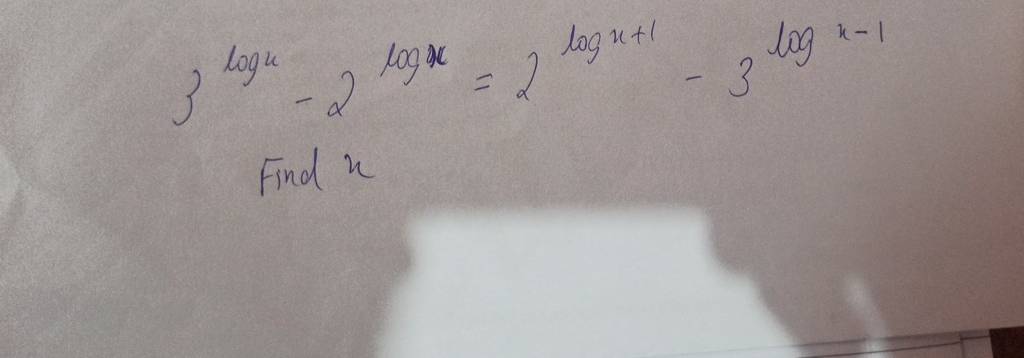 3^{log x} - 2^{log x} = 2^{log x+1} - 3^{log x-1}
Find x